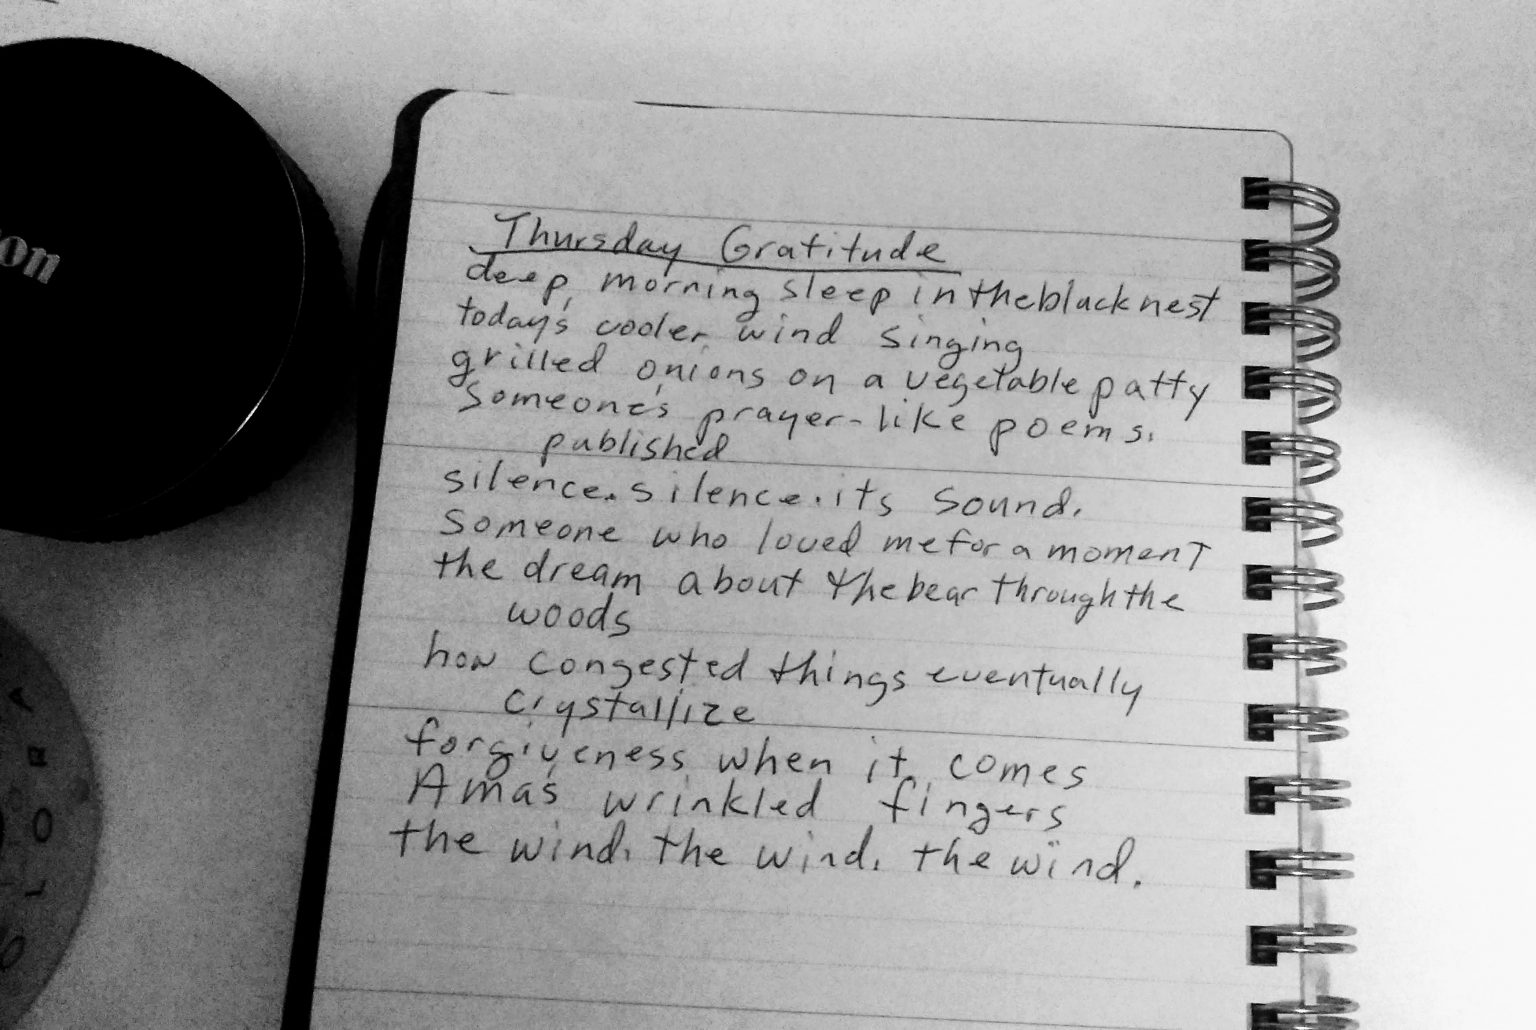 on
Thursday Gratitude
deep, morning sleep in the black nest
today's cooler wind singing
grilled onions on a vegetable patty
someone's prayer-like poems.
published
silence. silence. its sound.
someone who loved me for a moment
the dream about the bear through the
woods
how congested things eventually
crystallize
forgiveness when it comes
Ama's wrinkled fingers
the wind. the wind. the wind.